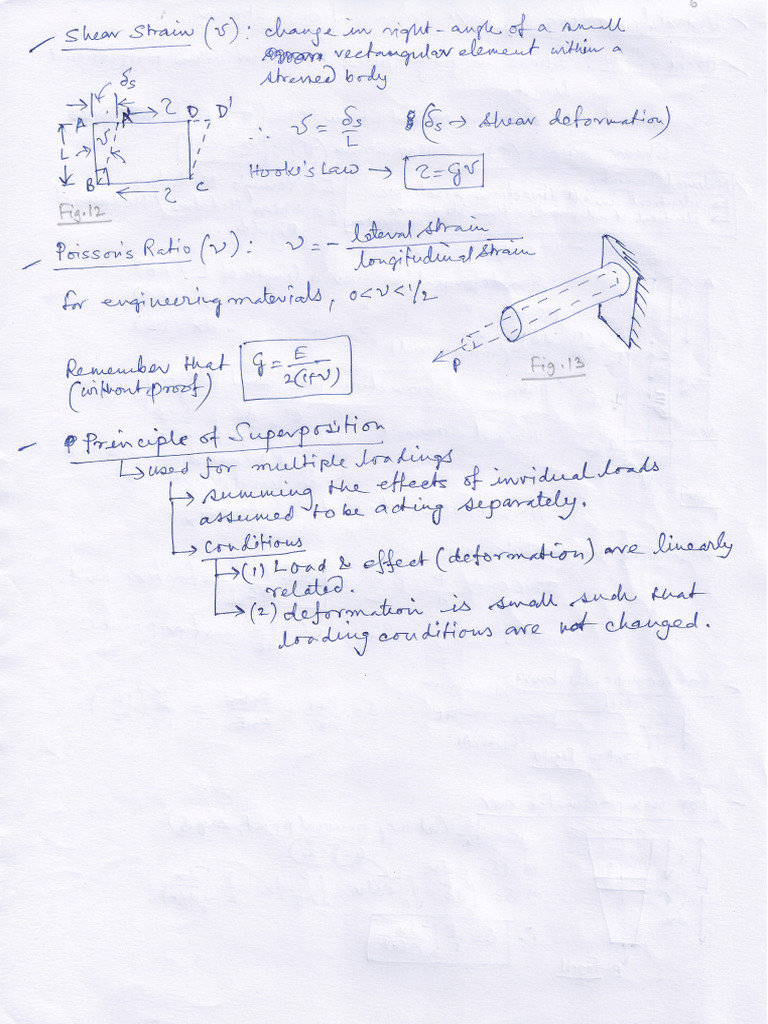 6
Shear Strain (γ): change in right-angle of a small
rectangular element within a
stressed body
δs
A A' τ D D'
γ
L
B τ C
Fig.12
∴ γ = δs/L (δs → shear deformation)
Hooke's Law → τ = Gγ
Poisson's Ratio (ν): ν = - lateral strain / longitudinal strain
for engineering materials, 0<ν<1/2
P
Fig.13
Remember that G = E / 2(1+ν)
(without proof)
Principle of Superposition
↳ used for multiple loadings
→ summing the effects of invidual loads
assumed to be acting separately.
→ conditions
→ (1) Load & effect (deformation) are linearly
related.
→ (2) deformation is small such that
loading conditions are not changed.